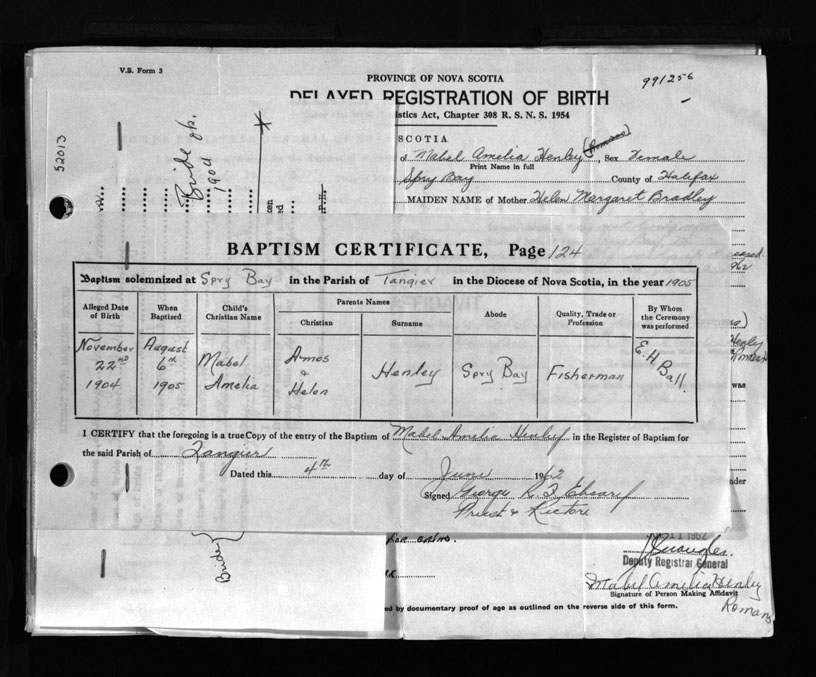 V.S. Form 3
PROVINCE OF NOVA SCOTIA
991256
DELAYED REGISTRATION OF BIRTH
istics Act, Chapter 308 R. S. N. S. 1954
52013
Bride
1904
SCOTIA
of Mabel Amelia Henley (Romans), Sex Female
Print Name in full
Spry Bay County of Halifax
MAIDEN NAME of Mother Helen Margaret Bradley
BAPTISM CERTIFICATE, Page 124
Baptism solemnized at Spry Bay in the Parish of Tangier in the Diocese of Nova Scotia, in the year 1905
Alleged Date of Birth
When Baptized
Child's Christian Name
Parents Names
Christian
Surname
Abode
Quality, Trade or Profession
By Whom the Ceremony was performed
November 22nd 1904
August 6th 1905
Mabel Amelia
Amos & Helen
Henley
Spry Bay
Fisherman
E. H. Ball.
I CERTIFY that the foregoing is a true Copy of the entry of the Baptism of Mabel Amelia Henley in the Register of Baptism for
the said Parish of Tangier
Dated this 4th day of June 1962
Signed George R.
Priest & Rector
was
Bride
Deputy Registrar General
Mabel Amelia Henley
Signature of Person Making Affidavit
Romans
ed by documentary proof of age as outlined on the reverse side of this form.